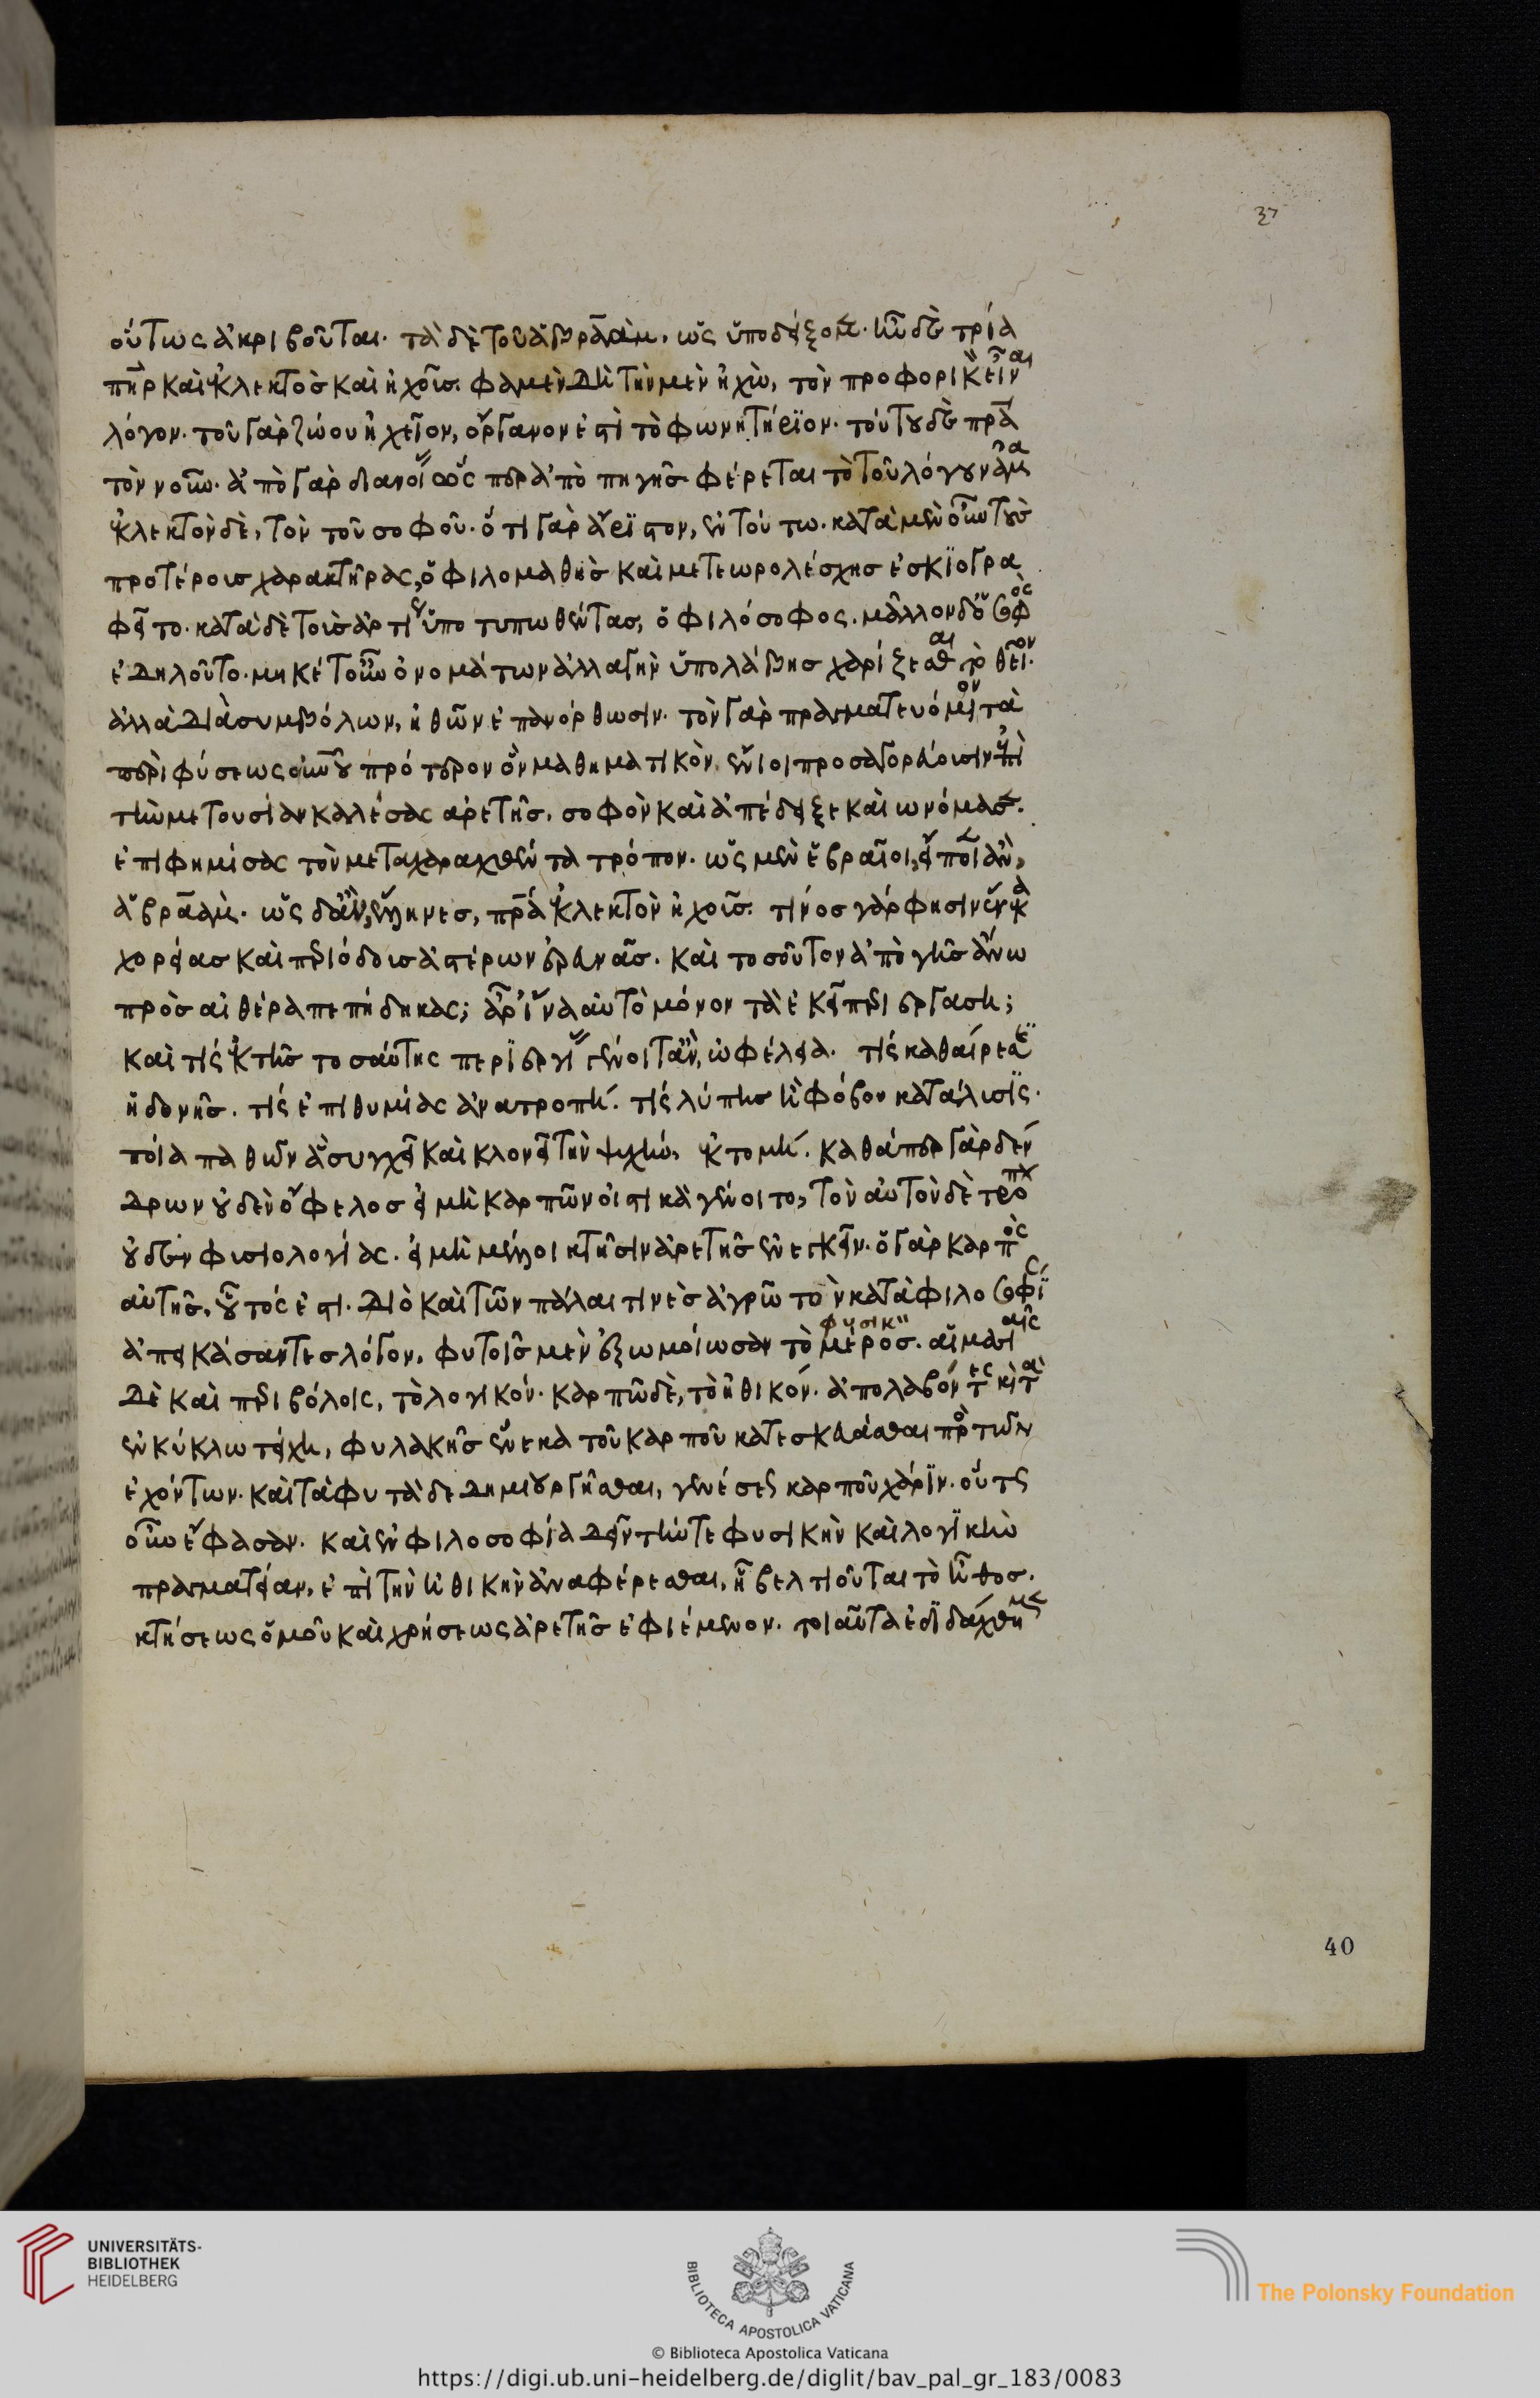 οὕτως ἀκριβοῦται. τὰ δὲ τοῦ ἀβραὰμ, ὡς ὑποδείξομεν. ἦν δὲ τρία
πηρ καὶ ἐκλεκτὸς καὶ ἠχοῦς. φαμὲν δὴ τὴν μὲν ἠχὼ, τὸν προφορικὸν εἶναι
λόγον. τοῦ γὰρ ζώου ἠχεῖον, ὄργανον ἐστὶ τὸ φωνητήριον. τούτου δὲ πρα
τὸν νοῦν. ἀπὸ γὰρ διανοίας ὥσπερ ἀπὸ πηγῆς φέρεται τὸ τοῦ λόγου νᾶμα
ἐκλεκτὸν δὲ, τὸν τοῦ σοφοῦ. ὅτι γὰρ ἄριστον, ἐν τούτω. κατὰ μὲν οὖν τοὺς
προτέροις χαρακτῆρας, ὁ φιλομαθὴς καὶ μετεωρολέσχης ἐσκϊογρα
φεῖτο. κατὰ δὲ τοὶς ἀρτίως ὑποτυπωθέντας, ὁ φιλόσοφος. μᾶλλον δ' ὁ σοφὸς
ἐδηλοῦτο. μηκέτ' οὖν ὀνομάτων ἀλλαγὴν ὑπολάβης χαρίζεσθαι τὸ θεῖον.
ἀλλὰ διὰ συμβόλων, ἠθῶν ἐπανόρθωσιν. τὸν γὰρ πραγματευόμενον τὰ
περὶ φύσεως οὐνοῦ πρότερον ὃν μαθηματικὸν, ἔνιοι προσαγορεύοισιν ἐπὶ
τὴν μετουσίαν καλέσας ἀρετῆς. σοφὸν καὶ ἀπέδειξε καὶ ὠνόμασεν.
ἐπιφημίσας τὸν μεταχαραχθέντα τρόπον. ὡς μὲν ἑβραῖοι, εἴποιεν ἂν,
ἀβραάμ. ὡς δ' ἂν, ἕλληνες, πρα ἐκλεκτὸν ἠχοῦς. τίνος γάρ φησιν ἕνεκα
χορείας καὶ περιόδοις ἀστέρων ἐρευνᾶς. καὶ τοσοῦτον ἀπὸ γῆς ἄνω
πρὸς αἰθέρα πεπήδηκας; ἆρ' ἵνα αὐτὸ μόνον τὰ ἐκεῖ περιεργάση;
καὶ τίς ἐκ τῆς τοσαύτης περϊεργίας γένοιτ' ἂν, ὠφέλεια. τίς καθαίρεσις
ἡδονῆς. τίς ἐπιθυμίας ἀνατροπή. τίς λύπης ἢ φόβου κατάλυσις.
ποία παθῶν ἃ συγχεῖ καὶ κλονεῖ τὴν ψυχήν, ἐκτομή. καθάπερ γὰρ δέν
δρων οὐδὲν ὄφελος εἰ μὴ καρπῶν οἰστικὰ γένοιτο, τὸν αὐτὸν δὲ τρόπον
οὐδὲν φισιολογίας. εἰ μὴ μέλλοι κτῆσιν ἀρετῆς ἐνεγκεῖν. ὁ γὰρ καρπὸς
αὐτῆς, οὗτός ἐστι. διὸ καὶ τῶν πάλαι τινὲς ἀγρῶ τὸν κατὰ φιλοσοφίας
ἀπεικάσαντες λόγον, φυτοῖς μὲν ἐξωμοίωσαν τὸ φυσικὸν μέρος. αἱμασιαῖς
δὲ καὶ περιβόλοις, τὸ λογικόν. καρπῶ δὲ, τὸ ἠθικόν. ἀπολαβόντες καὶ τὰ
ἐν κύκλω τείχη, φυλακῆς ἕνεκα τοῦ καρποῦ κατεσκευάσθαι πρὸς τῶν
ἐχόντων. καὶ τὰ φυτὰ δεδημιουργῆσθαι, γενέσεως καρποῦ χάριν. οὕτως
οὖν ἔφασαν. καὶ ἐν φιλοσοφία δεῖν τήν τε φυσικὴν καὶ λογϊκὴν
πραγματείαν, ἐπὶ τὴν ἠθικὴν ἀναφέρεσθαι, ἧ βελτιοῦται τὸ ἦθος.
κτήσεως ὁμοῦ καὶ χρήσεως ἀρετῆς ἐφιέμενον. τοιαῦτα ἐδϊδάχθημεν
37
40
UNIVERSITÄTS-
BIBLIOTHEK
HEIDELBERG
BIBLIOTECA APOSTOLICA VATICANA
The Polonsky Foundation
© Biblioteca Apostolica Vaticana
https://digi.ub.uni-heidelberg.de/diglit/bav_pal_gr_183/0083